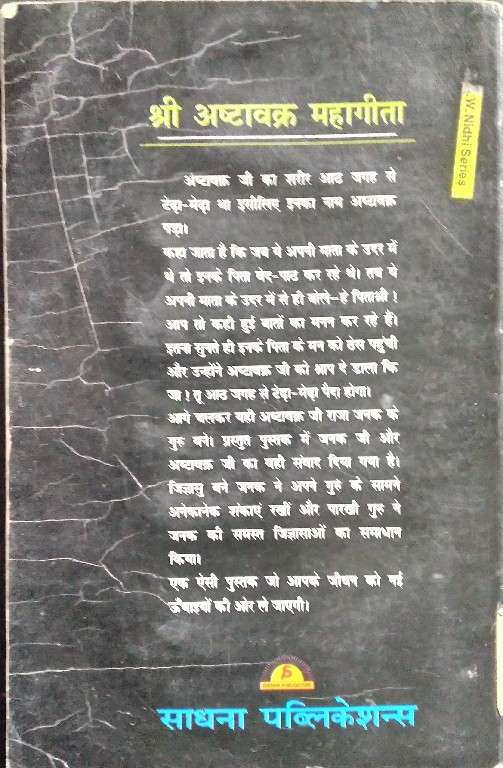 श्री अष्टावक्र महागीता
W. Nidhi Series
अष्टावक्र जी का शरीर आठ जगह से
टेढ़ा-मेढ़ा था इसीलिए इनका नाम अष्टावक्र
पड़ा।
कहा जाता है कि जब ये अपनी माता के उदर में
थे तो इनके पिता वेद-पाठ कर रहे थे। तब ये
अपनी माता के उदर में से ही बोले–हे पिताश्री !
आप तो कही हुई बातों का मनन कर रहे हैं।
इतना सुनते ही इनके पिता के मन को ठेस पहुंची
और उन्होंने अष्टावक्र जी को श्राप दे डाला कि
जा ! तू आठ जगह से टेढ़ा-मेढ़ा पैदा होगा।
आगे चलकर यही अष्टावक्र जी राजा जनक के
गुरु बने। प्रस्तुत पुस्तक में जनक जी और
अष्टावक्र जी का वही संवाद दिया गया है।
जिज्ञासु बने जनक ने अपने गुरु के सामने
अनेकानेक शंकाएं रखीं और पारखी गुरु ने
जनक की समस्त जिज्ञासाओं का समाधान
किया।
एक ऐसी पुस्तक जो आपके जीवन को नई
ऊँचाइयों की ओर ले जाएगी।
साधना पब्लिकेशन्स